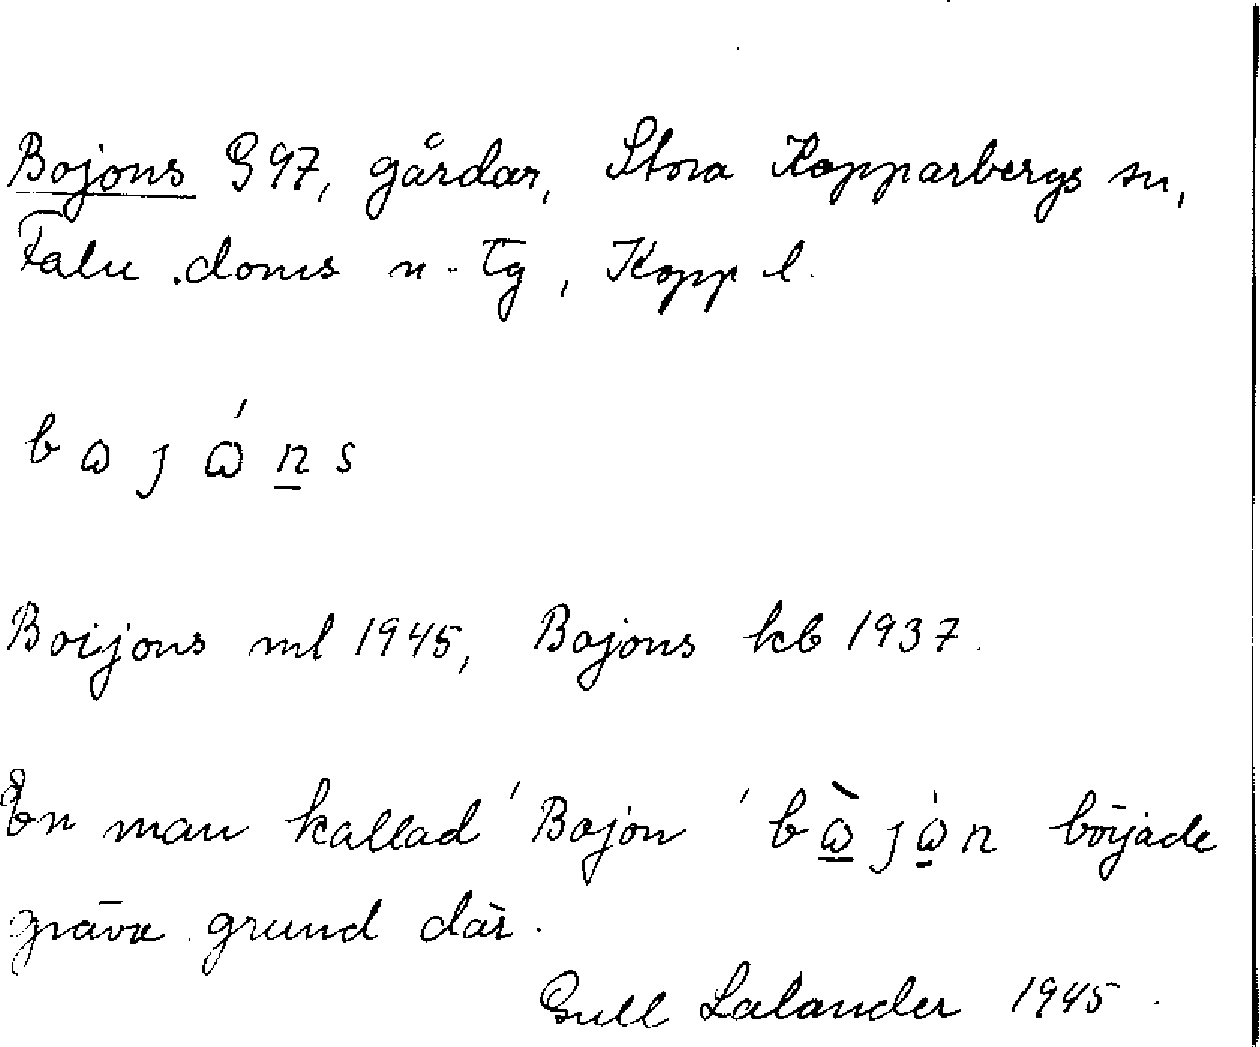 Bojons G97, gårdar, Stora Kopparbergs sn,
Falu doms n. tg, Kopp l.
b ω j ώ n s
Boijons ml 1945, Bojons kb 1937.
En man kallad 'Bojon' b ὼ j ώ n började
gräva grund där.
Gull Lalander 1945.